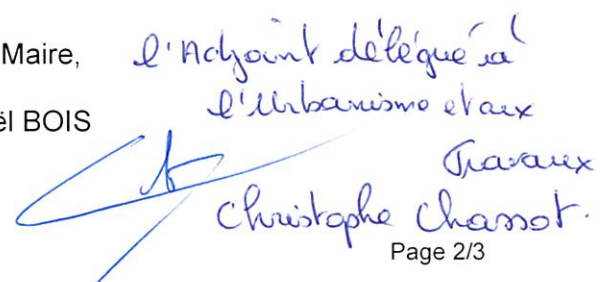 Maire,
l'Adjoint délégué à
l'Urbanisme et aux
ël BOIS
Travaux
Christophe Chassot.
Page 2/3